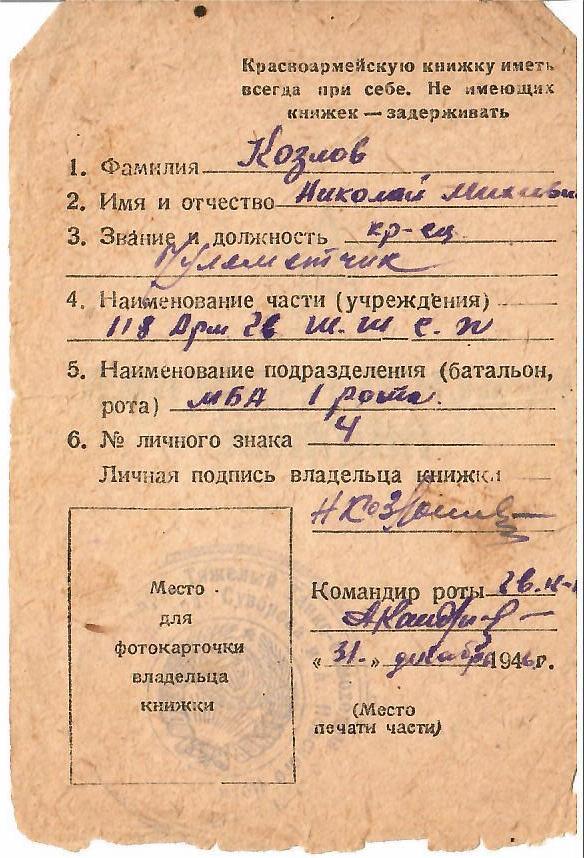 Красноармейскую книжку иметь
всегда при себе. Не имеющих
книжек — задерживать
1. Фамилия Козлов
2. Имя и отчество Николай
3. Звание и должность кр-ец
Пулеметчик
4. Наименование части (учреждения)
118
5. Наименование подразделения (батальон,
рота) МБА 1 рота
6. № личного знака 4
Личная подпись владельца книжки
Место
для
фотокарточки
владельца
книжки
Командир роты
"31." декабря 1946г.
(Место
печати части)